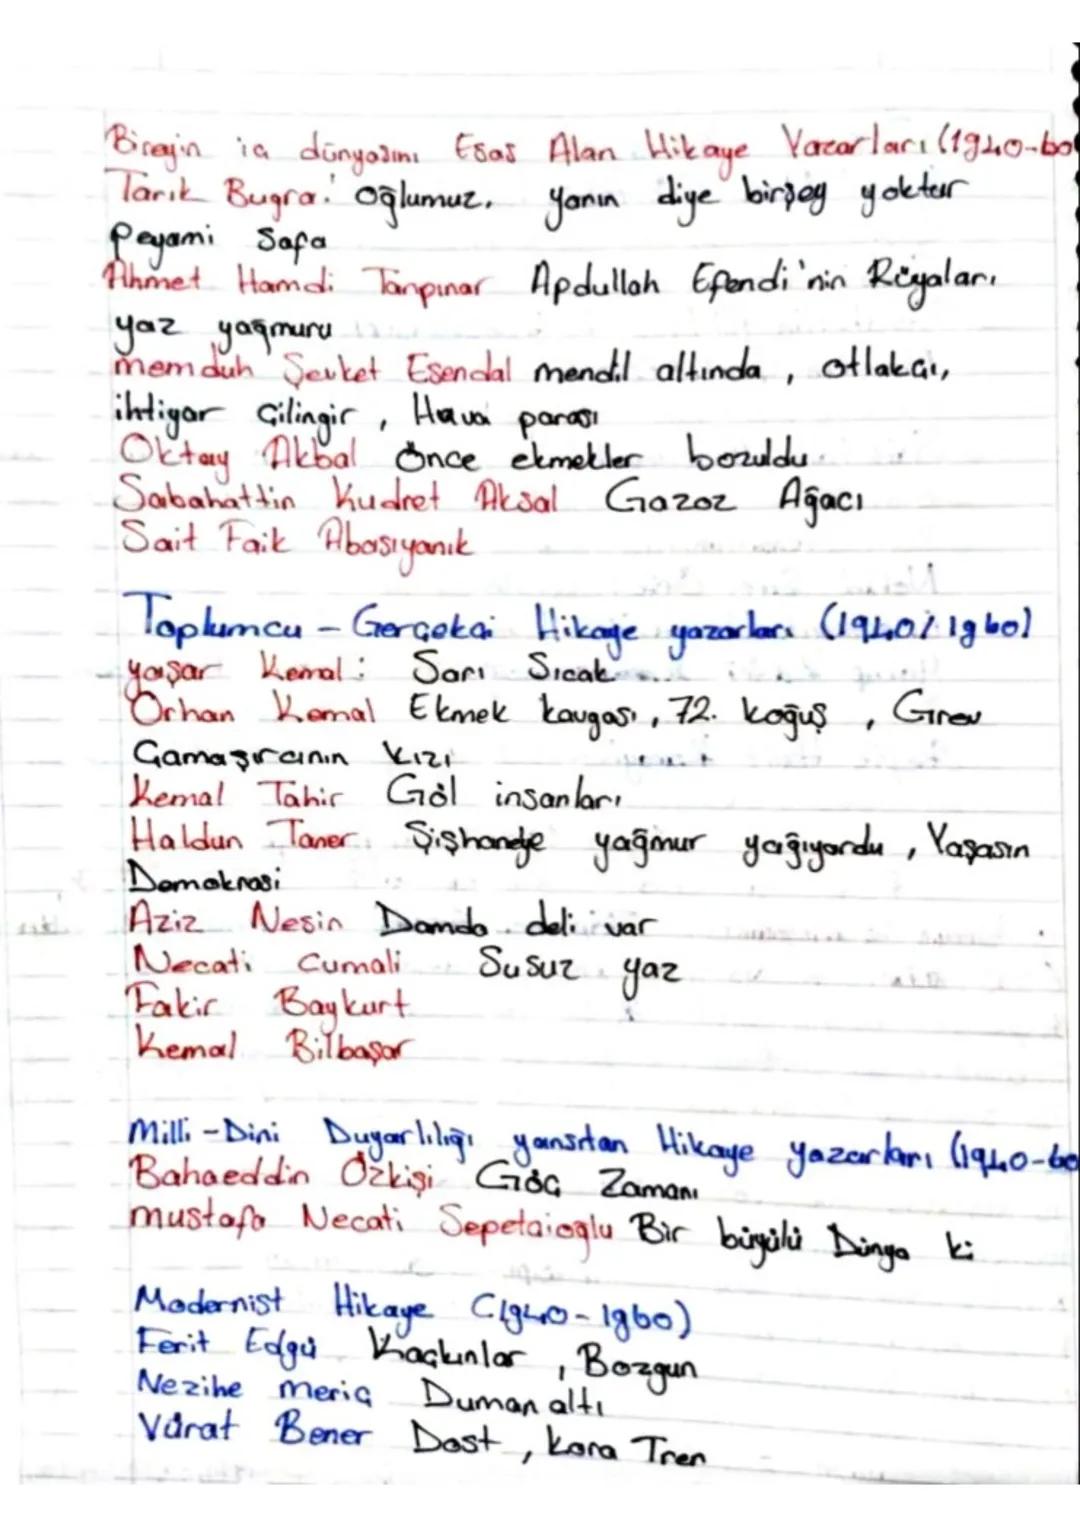 Bireyin iç dünyasını Esas Alan Hikaye Yazarları (1940-60
Tarık Buğra: Oğlumuz, yarın diye birşey yoktur
Peyami Safa
Ahmet Hamdi Tanpınar Apdullah Efendi'nin Rüyaları
yaz yağmuru
memduh Şevket Esendal mendil altında, otlakçı,
ihtiyar Çilingir, Hava parası
Oktay Akbal Önce ekmekler bozuldu.
Sabahattin Kudret Aksal Gazoz Ağacı
Sait Faik Abasıyanık
Toplumcu - Gerçekçi Hikaye yazarları (1940/1960)
yaşar Kemal: Sarı Sıcak
Orhan Kemal Ekmek kavgası, 72. koğuş, Grev
Çamaşırcının Kızı
Kemal Tahir Göl insanları
Haldun Taner Şişhaneye yağmur yağıyordu, Yaşasın
Demokrasi
Aziz Nesin Damda deli var
Necati Cumali Susuz yaz
Fakir Baykurt
Kemal Bilbaşar
Milli - Dini Duyarlılığı yansıtan Hikaye yazarları (1940-60
Bahaeddin Özkişi Göç Zamanı
mustafa Necati Sepetçioglu Bir büyülü Dünya ki
Modernist Hikaye (1940-1960)
Ferit Edgü Kaçkınlar, Bozgun
Nezihe meriç Dumanaltı
Vürat Bener Dost, kara Tren